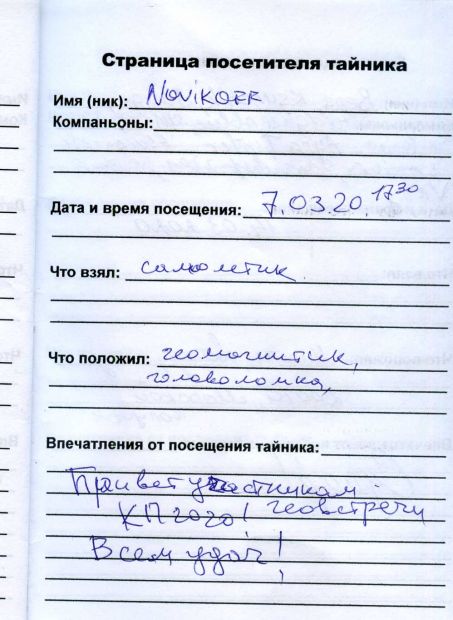 Страница посетителя тайника
Имя (ник): NoviKOFF
Компаньоны:
Дата и время посещения: 7.03.20. 17 30
Что взял: самолетик.
Что положил: геомагнитик,
головоломка,
Впечатления от посещения тайника:
Привет участникам
КП2020! геовстречи
Всем удач!